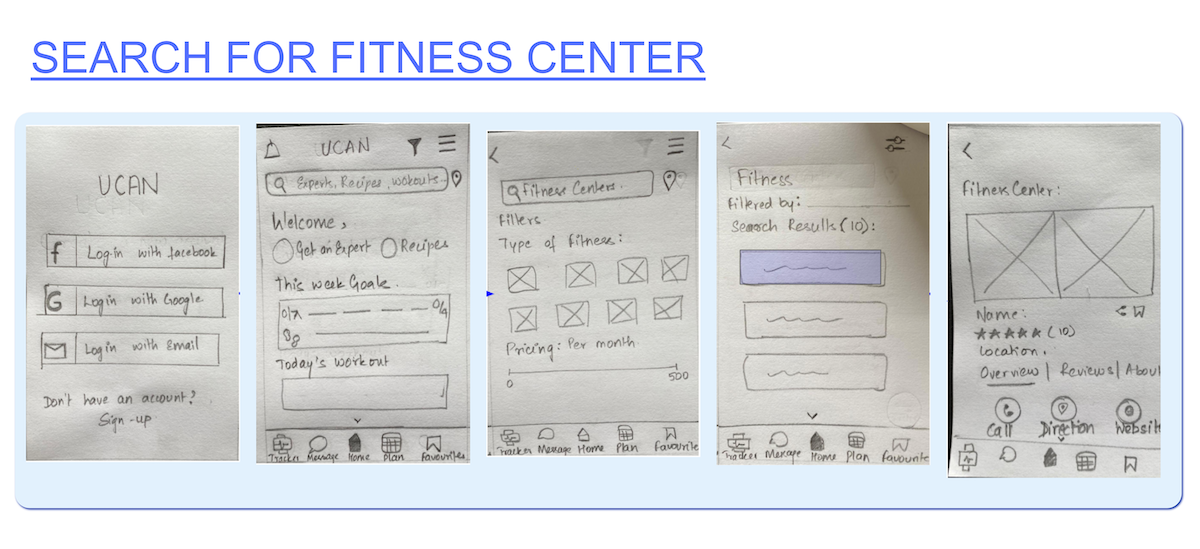 SEARCH FOR FITNESS CENTER
UCAN
f Log-in with facebook
G Login with Google
Login with Email
Don't have an account?
Sign-up
UCAN
Experts, Recipes, workouts..
Welcome,
Get an Expert Recipes
This week Goals.
0/7 0/4
Today's workout
Tracker Message Home Plan Favourites
Fitness Centers.
Filters
Type of fitness:
Pricing: Per month
0 500
Tracker Message Home Plan Favourite
Fitness
Filtered by:
Search Results (10):
Tracker Message Home Plan Favourite
Fitness Center:
Name:
(10)
Location.
Overview | Reviews | About
Call Direction Website